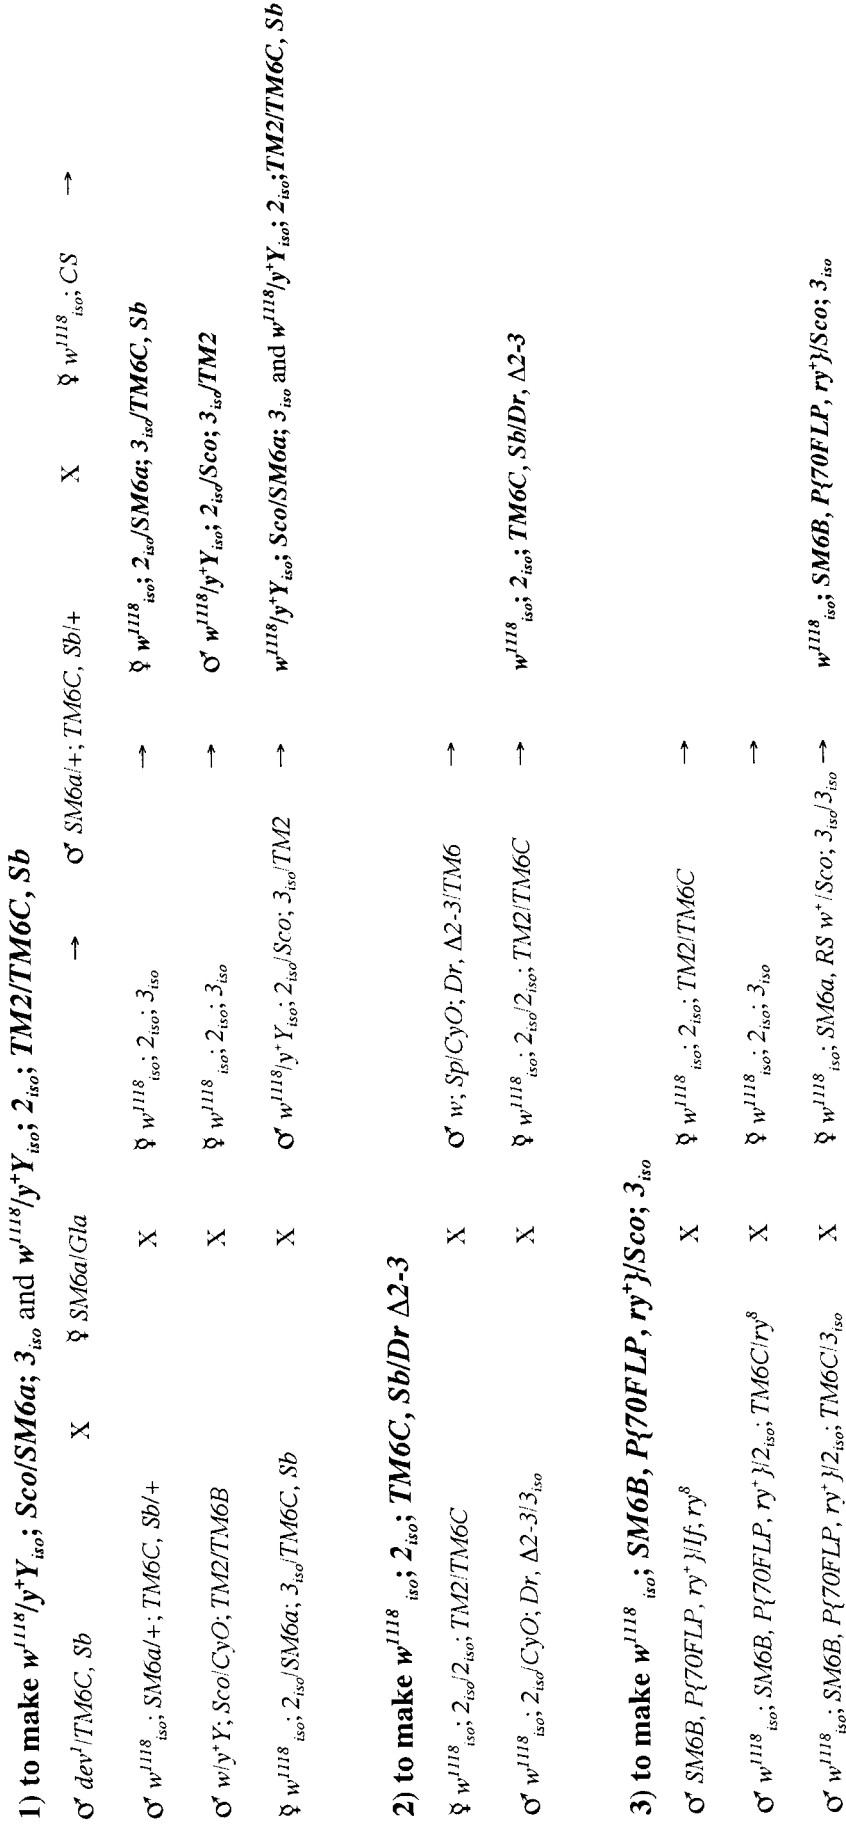 1) to make w¹¹¹⁸/y⁺Y_iso; Sco/SM6a; 3_iso and w¹¹¹⁸/y⁺Y_iso; 2_iso; TM2/TM6C, Sb
♂ dev¹/TM6C, Sb X ☿ SM6a/Gla → ♂ SM6a/+; TM6C, Sb/+ X ☿ w¹¹¹⁸_iso; CS →
♂ w¹¹¹⁸_iso; SM6a/+; TM6C, Sb/+ X ☿ w¹¹¹⁸_iso; 2_iso; 3_iso → ☿ w¹¹¹⁸_iso; 2_iso/SM6a; 3_iso/TM6C, Sb
♂ w/y⁺Y; Sco/CyO; TM2/TM6B X ☿ w¹¹¹⁸_iso; 2_iso; 3_iso → ♂ w¹¹¹⁸/y⁺Y_iso; 2_iso/Sco; 3_iso/TM2
☿ w¹¹¹⁸_iso; 2_iso/SM6a; 3_iso/TM6C, Sb X ♂ w¹¹¹⁸/y⁺Y_iso; 2_iso/Sco; 3_iso/TM2 → w¹¹¹⁸/y⁺Y_iso; Sco/SM6a; 3_iso and w¹¹¹⁸/y⁺Y_iso; 2_iso; TM2/TM6C, Sb
2) to make w¹¹¹⁸_iso; 2_iso; TM6C, Sb/Dr Δ2-3
☿ w¹¹¹⁸_iso; 2_iso/2_iso; TM2/TM6C X ♂ w; Sp/CyO; Dr, Δ2-3/TM6 →
♂ w¹¹¹⁸_iso; 2_iso/CyO; Dr, Δ2-3/3_iso X ☿ w¹¹¹⁸_iso; 2_iso/2_iso; TM2/TM6C → w¹¹¹⁸_iso; 2_iso; TM6C, Sb/Dr, Δ2-3
3) to make w¹¹¹⁸_iso; SM6B, P{70FLP, ry⁺}/Sco; 3_iso
♂ SM6B, P{70FLP, ry⁺}/If; ry⁸ X ☿ w¹¹¹⁸_iso; 2_iso; TM2/TM6C →
♂ w¹¹¹⁸_iso; SM6B, P{70FLP, ry⁺}/2_iso; TM6C/ry⁸ X ☿ w¹¹¹⁸_iso; 2_iso; 3_iso →
♂ w¹¹¹⁸_iso; SM6B, P{70FLP, ry⁺}/2_iso; TM6C/3_iso X ☿ w¹¹¹⁸_iso; SM6a, RS w⁺/Sco; 3_iso/3_iso → w¹¹¹⁸_iso; SM6B, P{70FLP, ry⁺}/Sco; 3_iso